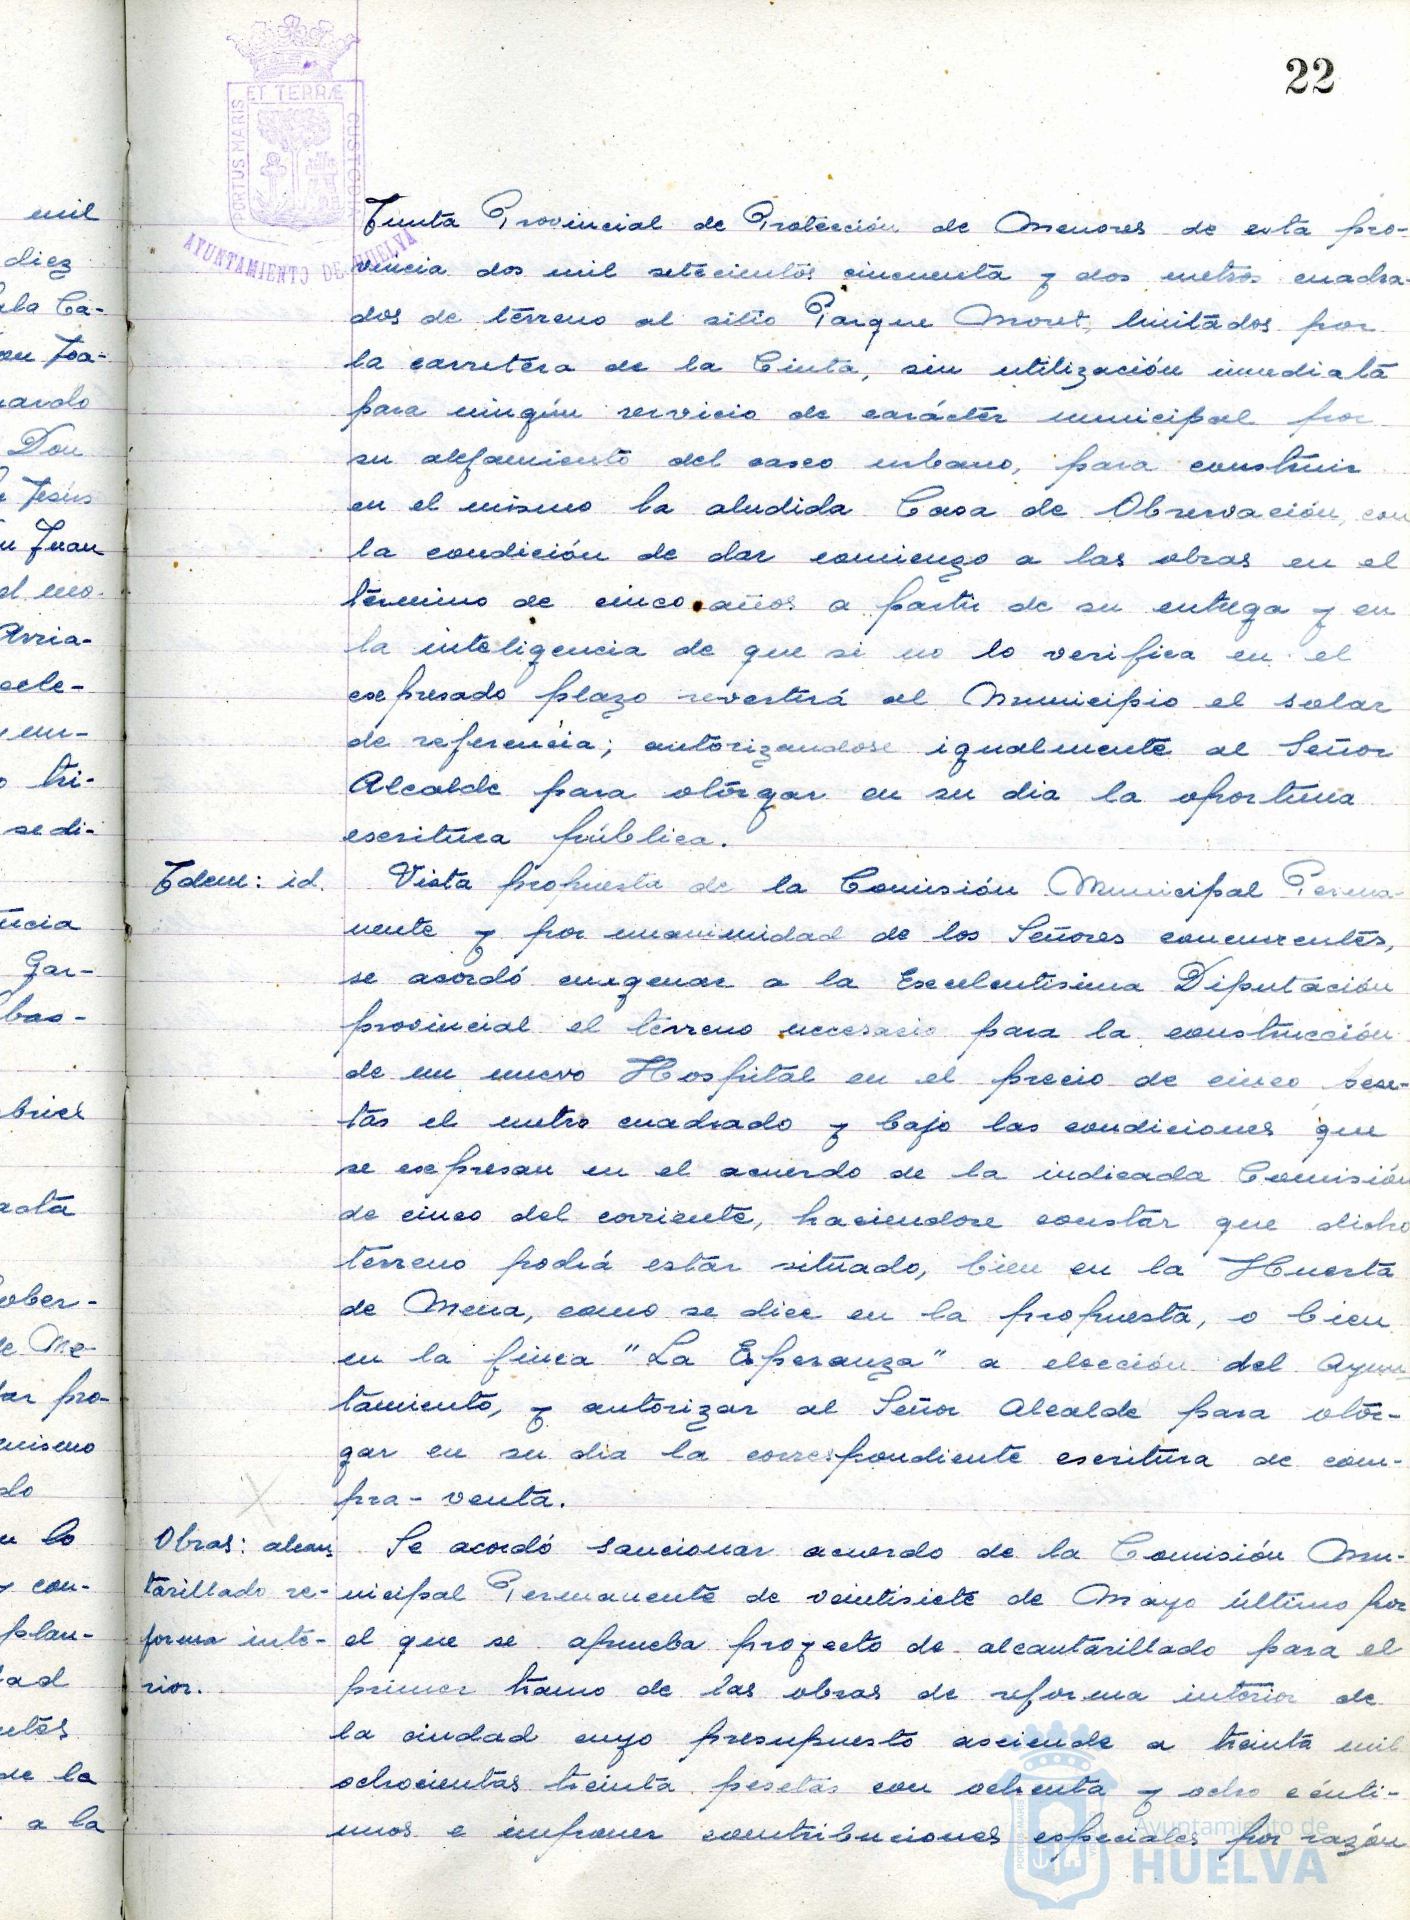 22
PORTUS MARIS ET TERRÆ CUSTODIA
AYUNTAMIENTO DE HUELVA
Junta Provincial de Protección de Menores de esta pro-
vincia dos mil setecientos cincuenta y dos metros cuadra-
dos de terreno al sitio Parque Moret, limitados por
la carretera de la Cinta, sin utilización inmediata
para ningún servicio de carácter municipal por
su alejamiento del casco urbano, para construir
en el mismo la aludida Casa de Observación, con
la condición de dar comienzo a las obras en el
término de cinco años a partir de su entrega y en
la inteligencia de que si no lo verifica en el
expresado plazo revertirá al Municipio el solar
de referencia; autorizandose igualmente al Señor
Alcalde para otorgar en su dia la oportuna
escritura pública.
Idem: id.
Vista propuesta de la Comisión Municipal Perma-
nente y por unanimidad de los Señores concurrentes,
se acordó enagenar a la Excelentisima Diputación
provincial el terreno necesario para la construcción
de un nuevo Hospital en el precio de cinco pese-
tas el metro cuadrado y bajo las condiciones que
se expresan en el acuerdo de la indicada Comisión
de cinco del corriente, haciendose constar que dicho
terreno podrá estar situado, bien en la Huerta
de Mena, como se dice en la propuesta, o bien
en la finca "La Esperanza" a elección del Ayun-
tamiento, y autorizar al Señor Alcalde para otor-
gar en su dia la correspondiente escritura de com-
pra-venta.
Obras: alcan-
tarillado re-
forma inte-
rior.
Se acordó sancionar acuerdo de la Comisión Mu-
nicipal Permanente de veintisiete de Mayo último por
el que se aprueba proyecto de alcantarillado para el
primer tramo de las obras de reforma interior de
la ciudad cuyo presupuesto asciende a treinta mil
ochocientas treinta pesetas con ochenta y ocho cénti-
mos e imponer contribuciones especiales por razón
Ayuntamiento de
HUELVA
mil
diez
Don
Juan
mismo
de la
a la